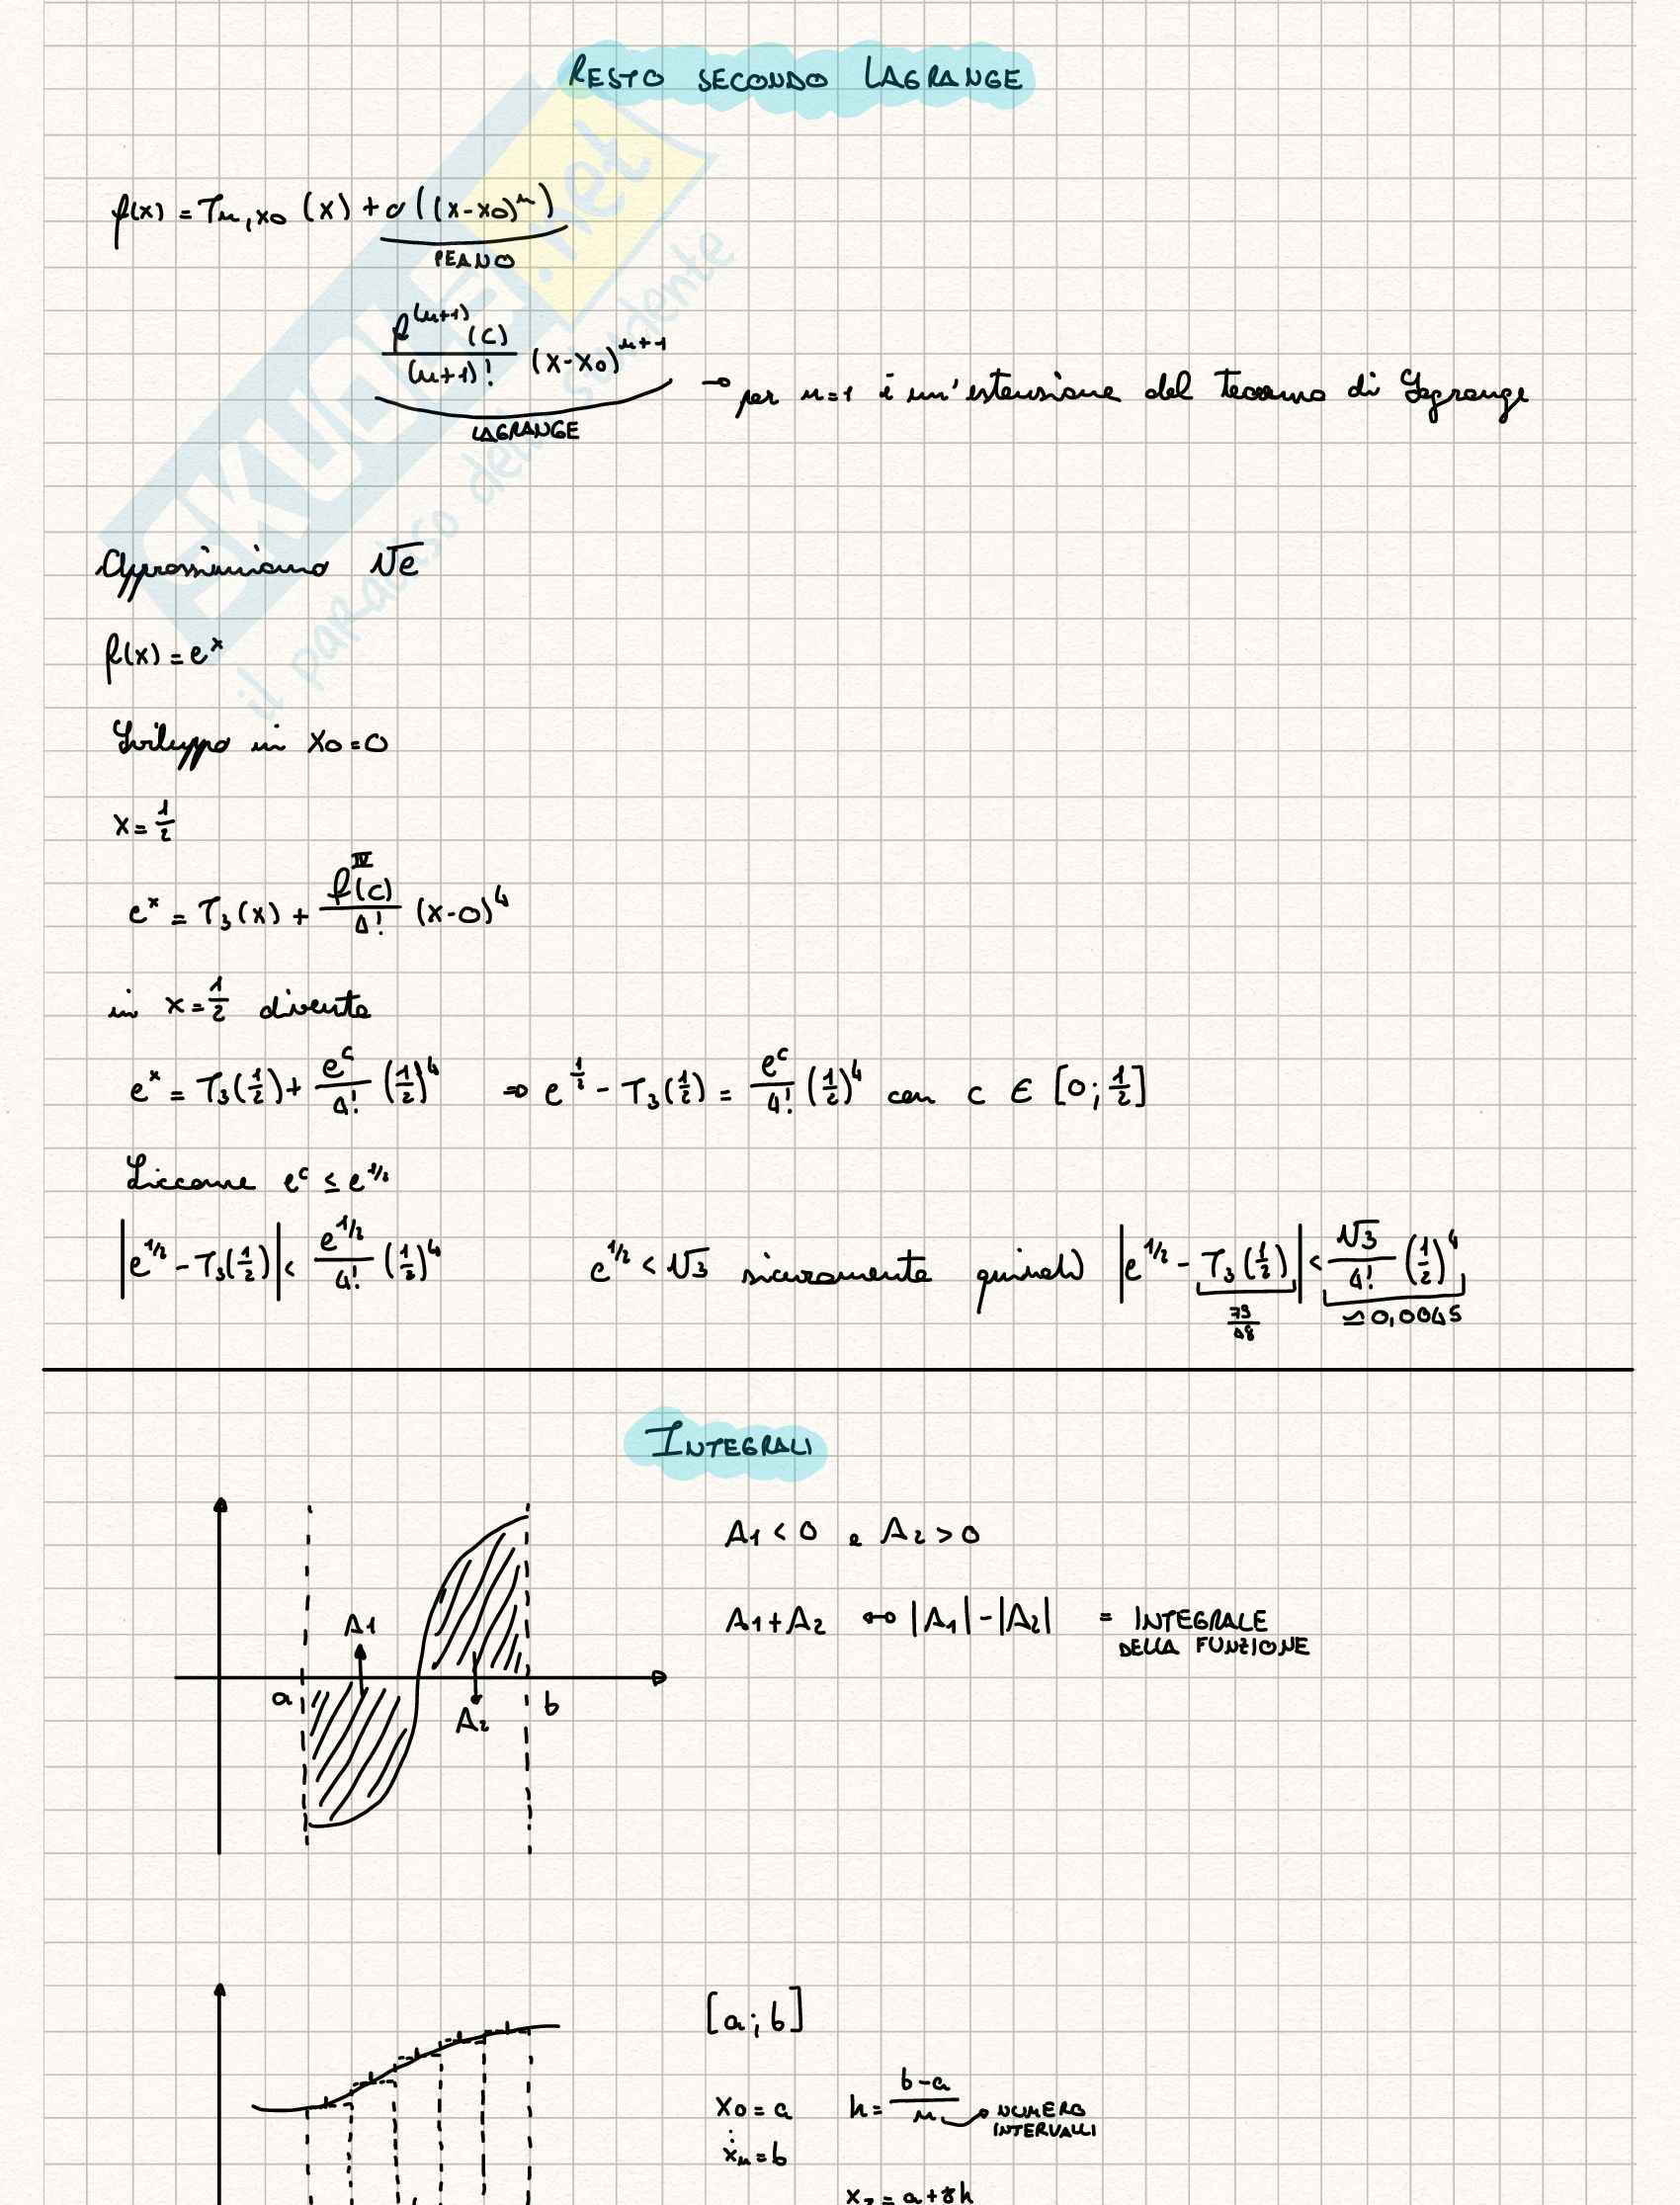 RESTO SECONDO LAGRANGE
f(x) = Tn,x0 (x) + o((x-x0)^n)
PEANO
f^(n+1)(c) / (n+1)! (x-x0)^n+1 → per n=1 è un'estensione del teorema di Lagrange
LAGRANGE
SKUOLA.net
il paradiso dello studente
Approssimiamo √e
f(x) = e^x
Sviluppo in x0=0
x = 1/2
e^x = T3(x) + f^IV(c) / 4! (x-0)^4
in x = 1/2 diventa
e^x = T3(1/2) + e^c / 4! (1/2)^4 ⇒ e^1/2 - T3(1/2) = e^c / 4! (1/2)^4 con c ∈ [0; 1/2]
Siccome e^c ≤ e^1/2
|e^1/2 - T3(1/2)| < e^1/2 / 4! (1/2)^4 e^1/2 < √3 sicuramente quindi |e^1/2 - T3(1/2)| < √3 / 4! (1/2)^4
79/48 ≃ 0,0045
INTEGRALI
A1 < 0 e A2 > 0
A1 + A2 ↔ |A1| - |A2| = INTEGRALE DELLA FUNZIONE
A1
a
b
A2
[a; b]
x0 = a h = b-a / n → NUMERO INTERVALLI
⋮
xn = b